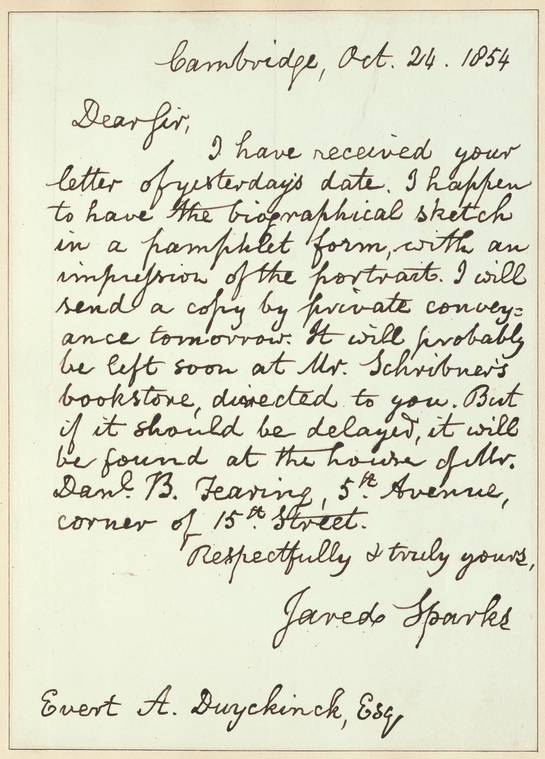 Cambridge, Oct. 24. 1854
Dear Sir,
I have received your
letter of yesterday's date. I happen
to have the biographical sketch
in a pamphlet form, with an
impression of the portrait. I will
send a copy by private convey=
ance tomorrow. It will probably
be left soon at Mr. Schribner's
bookstore, directed to you. But
if it should be delayed, it will
be found at the house of Mr.
Danl. B. Fearing, 5th. Avenue,
corner of 15th. Street.
Respectfully & truly yours,
Jared Sparks
Evert A. Duyckinck, Esq